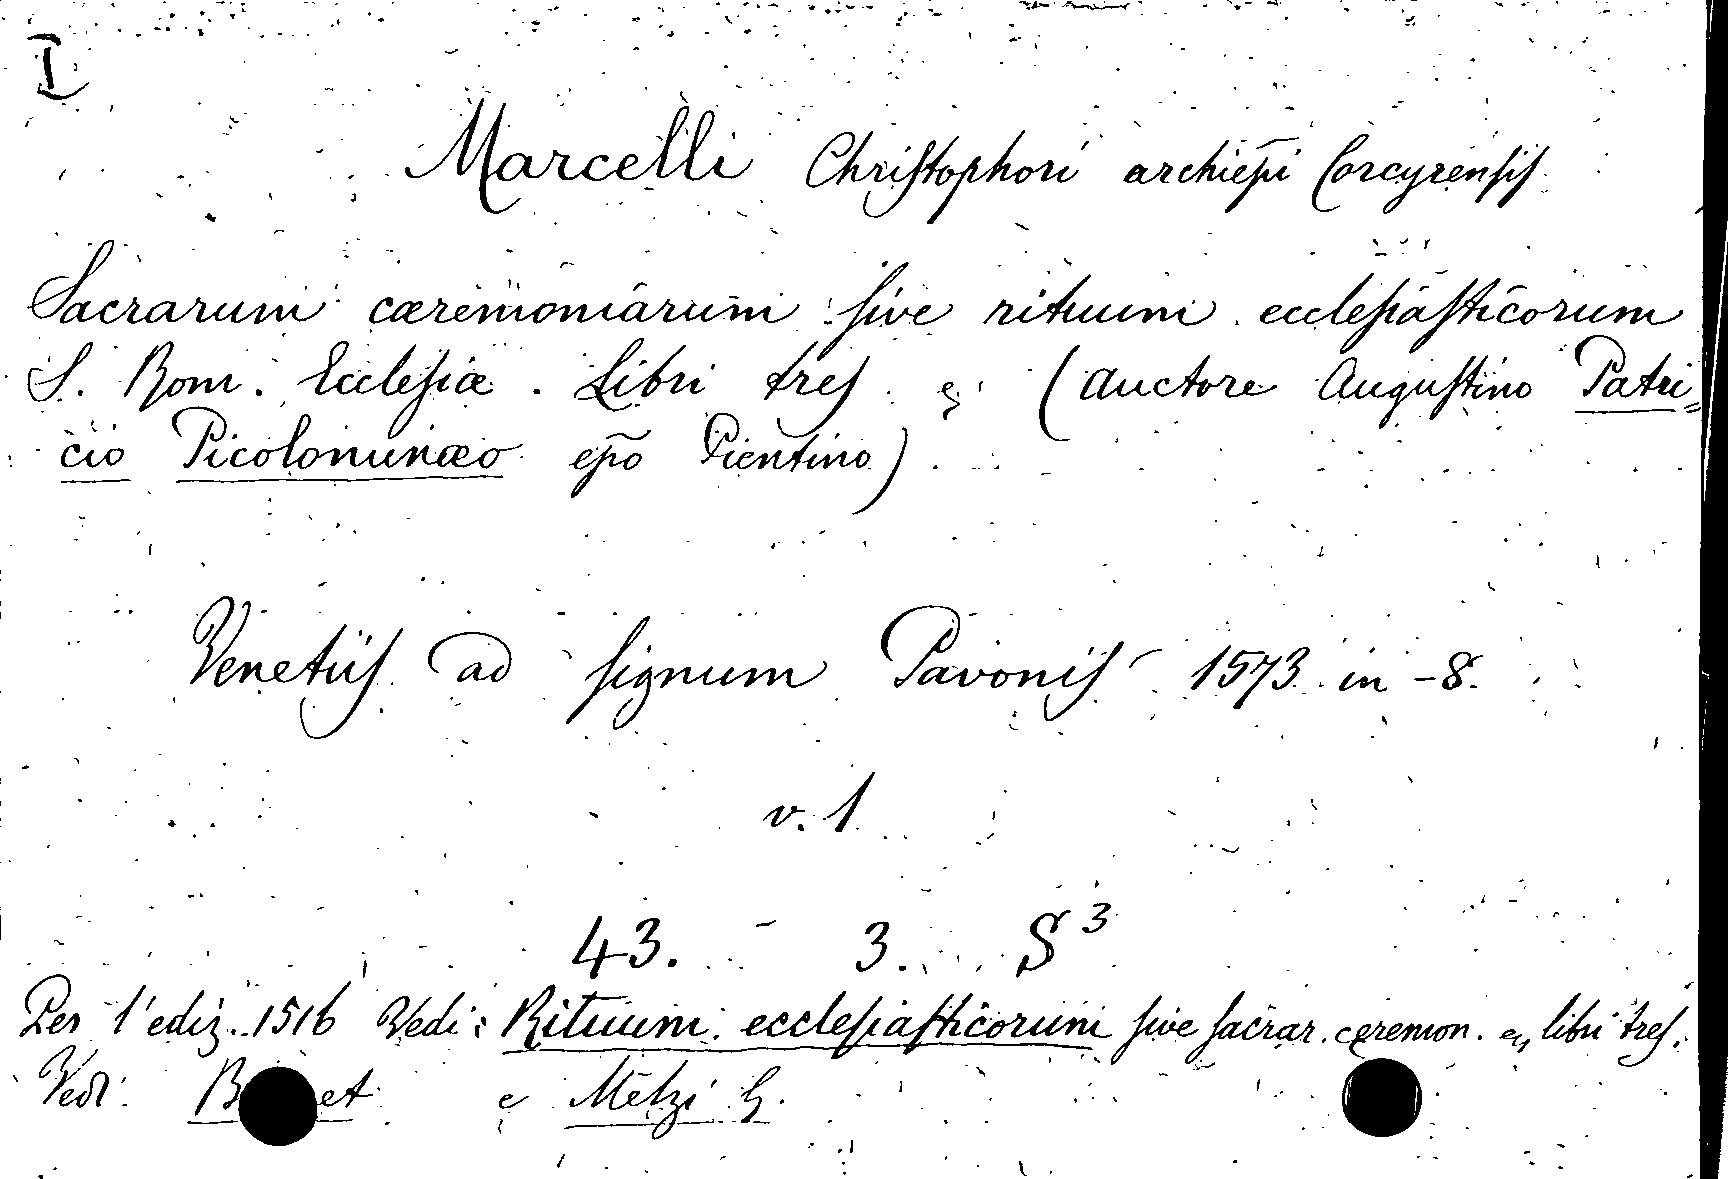 I
Marcelli Christophori archiepi Corcyrensis
Sacrarum cæremoniarum sive rituum ecclesiasticorum
S. Rom. Ecclesiæ. Libri tres & (auctore Augustino Patri=
cio Picolominæo epo Pientino)
Venetiis ad signum Pavonis 1573 in-8.
v. 1
43. - 3. S 3
Per l'ediz. 1516 Vedi: Rituum ecclesiasticorum sive sacrar. ceremon. libri tres.
Vedi: e Melzi G.